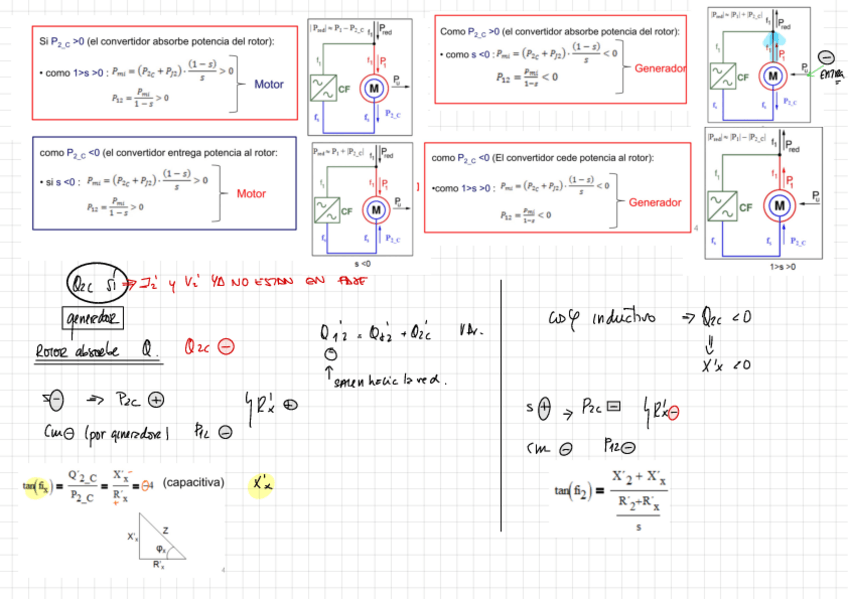 Si P2_C >0 (el convertidor absorbe potencia del rotor):
• como 1>s >0 : Pmi = (P2C + Pj2) · (1 − s)/s > 0
P12 = Pmi/(1 − s) > 0
Motor
|Pred| = P1 − P2_C
f1
Pred
f1
P1
CF
M
Pu
fs
fs
P2_C
Como P2_C >0 (el convertidor absorbe potencia del rotor):
• como s <0 : Pmi = (P2C + Pj2) · (1 − s)/s < 0
P12 = Pmi/(1 − s) < 0
Generador
|Pred| = |P1| + |P2_C|
f1
Pred
f1
P1
CF
M
Pu
fs
fs
P2_C
−
ENTRA
como P2_C <0 (el convertidor entrega potencia al rotor):
• si s <0 : Pmi = (P2C + Pj2) · (1 − s)/s > 0
P12 = Pmi/(1 − s) > 0
Motor
Pred = P1 + |P2_C|
f1
Pred
f1
P1
CF
M
Pu
fs
fs
P2_C
s <0
como P2_C <0 (El convertidor cede potencia al rotor):
•como 1>s >0 : Pmi = (P2C + Pj2) · (1 − s)/s < 0
P12 = Pmi/(1 − s) < 0
Generador
4
|Pred| = |P1| − |P2_C|
f1
Pred
f1
P1
CF
M
Pu
fs
fs
P2_C
1>s >0
Q2C sí → I2' y V2' YA NO ESTAN EN FASE
generador
ROTOR absorbe Q. Q2C −
Q12' = Qd2' + Q2C' VAr.
s − => P2C + R'x +
Cm − (por generador) P12 −
tan(fix) = Q´2_C/P2_C = X´x/R´x = −4 (capacitiva) X'x
X'x
Z
φx
R'x
4
cos φ inductivo => Q2C <0
⇓
X'x <0
s + → P2C − R'x −
Cm − P12 −
tan(fi2) = (X´2 + X´x)/((R´2+R´x)/s)